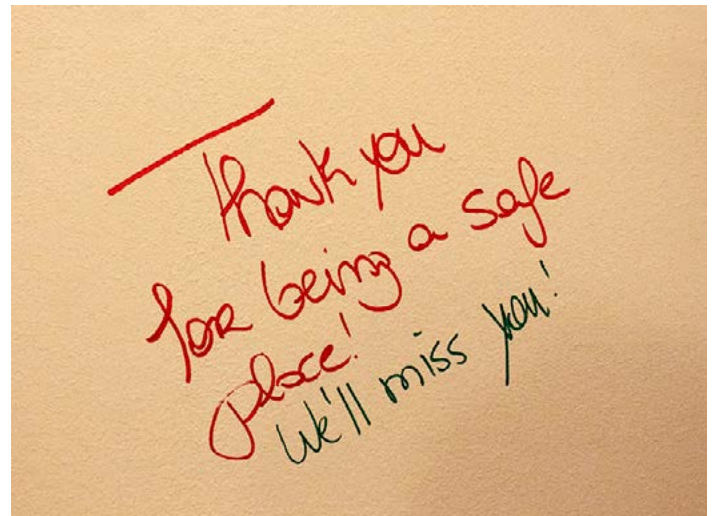 Thank you
for being a safe
place!
We'll miss you!